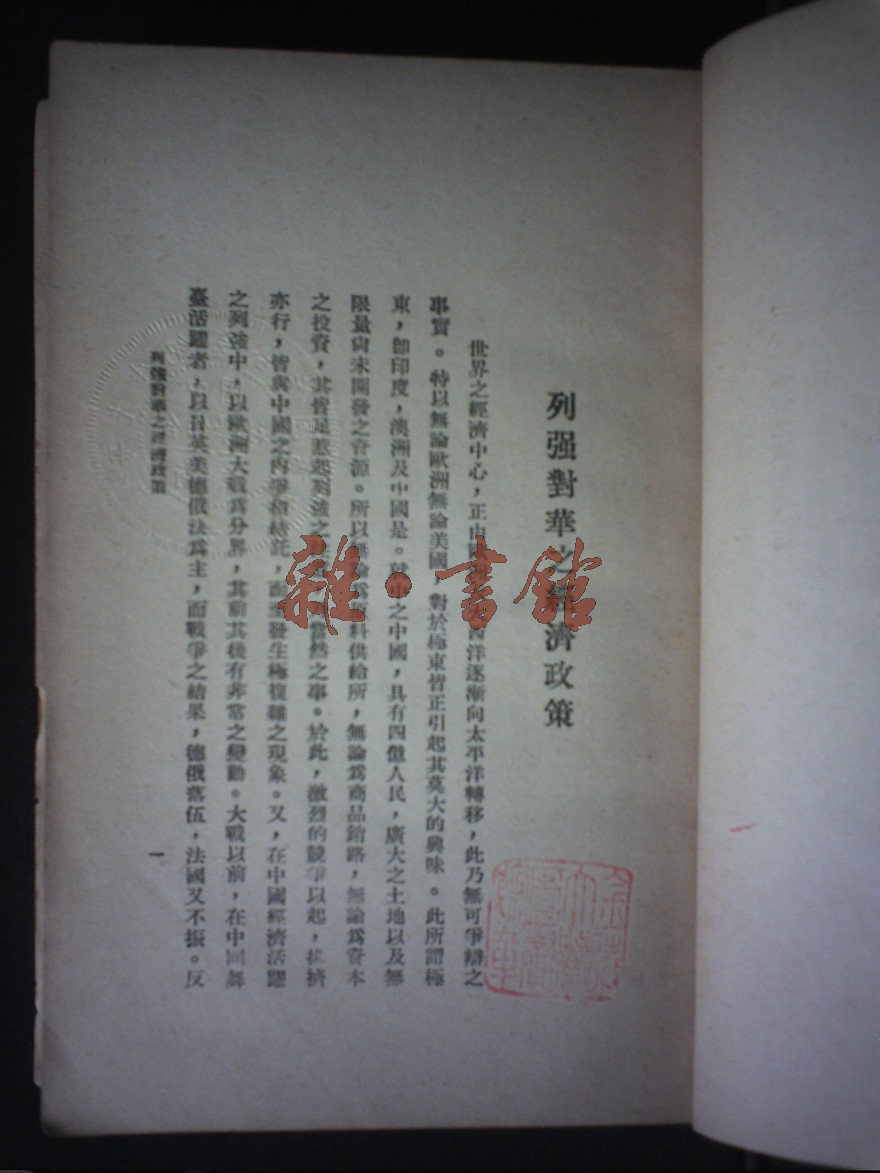 列强對華之經濟政策
世界之經濟中心，正由歐洲大西洋逐漸向太平洋轉移，此乃無可爭辯之
事實。特以無論歐洲無論美國，對於極東皆正引起其莫大的興味。此所謂極
東，卽印度，澳洲及中國是。就中之中國，具有四億人民，廣大之土地以及無
限量尙未開發之音源。所以無論爲原料供給所，無論爲商品銷路，無論爲資本
之投資，其皆足惹起列强之注 當然之事。於此，激烈的競爭以起，排擠
亦行，皆與中國之內爭相結託，而至發生極複雜之現象。又，在中國經濟活躍
之列强中，以歐洲大戰爲分界，其前其後有非常之變動。大戰以前，在中國舞
臺活躍者，以日英美德俄法爲主，而戰爭之結果，德俄落伍，法國又不振。反
列强對華之經濟政策
一
雜·書館